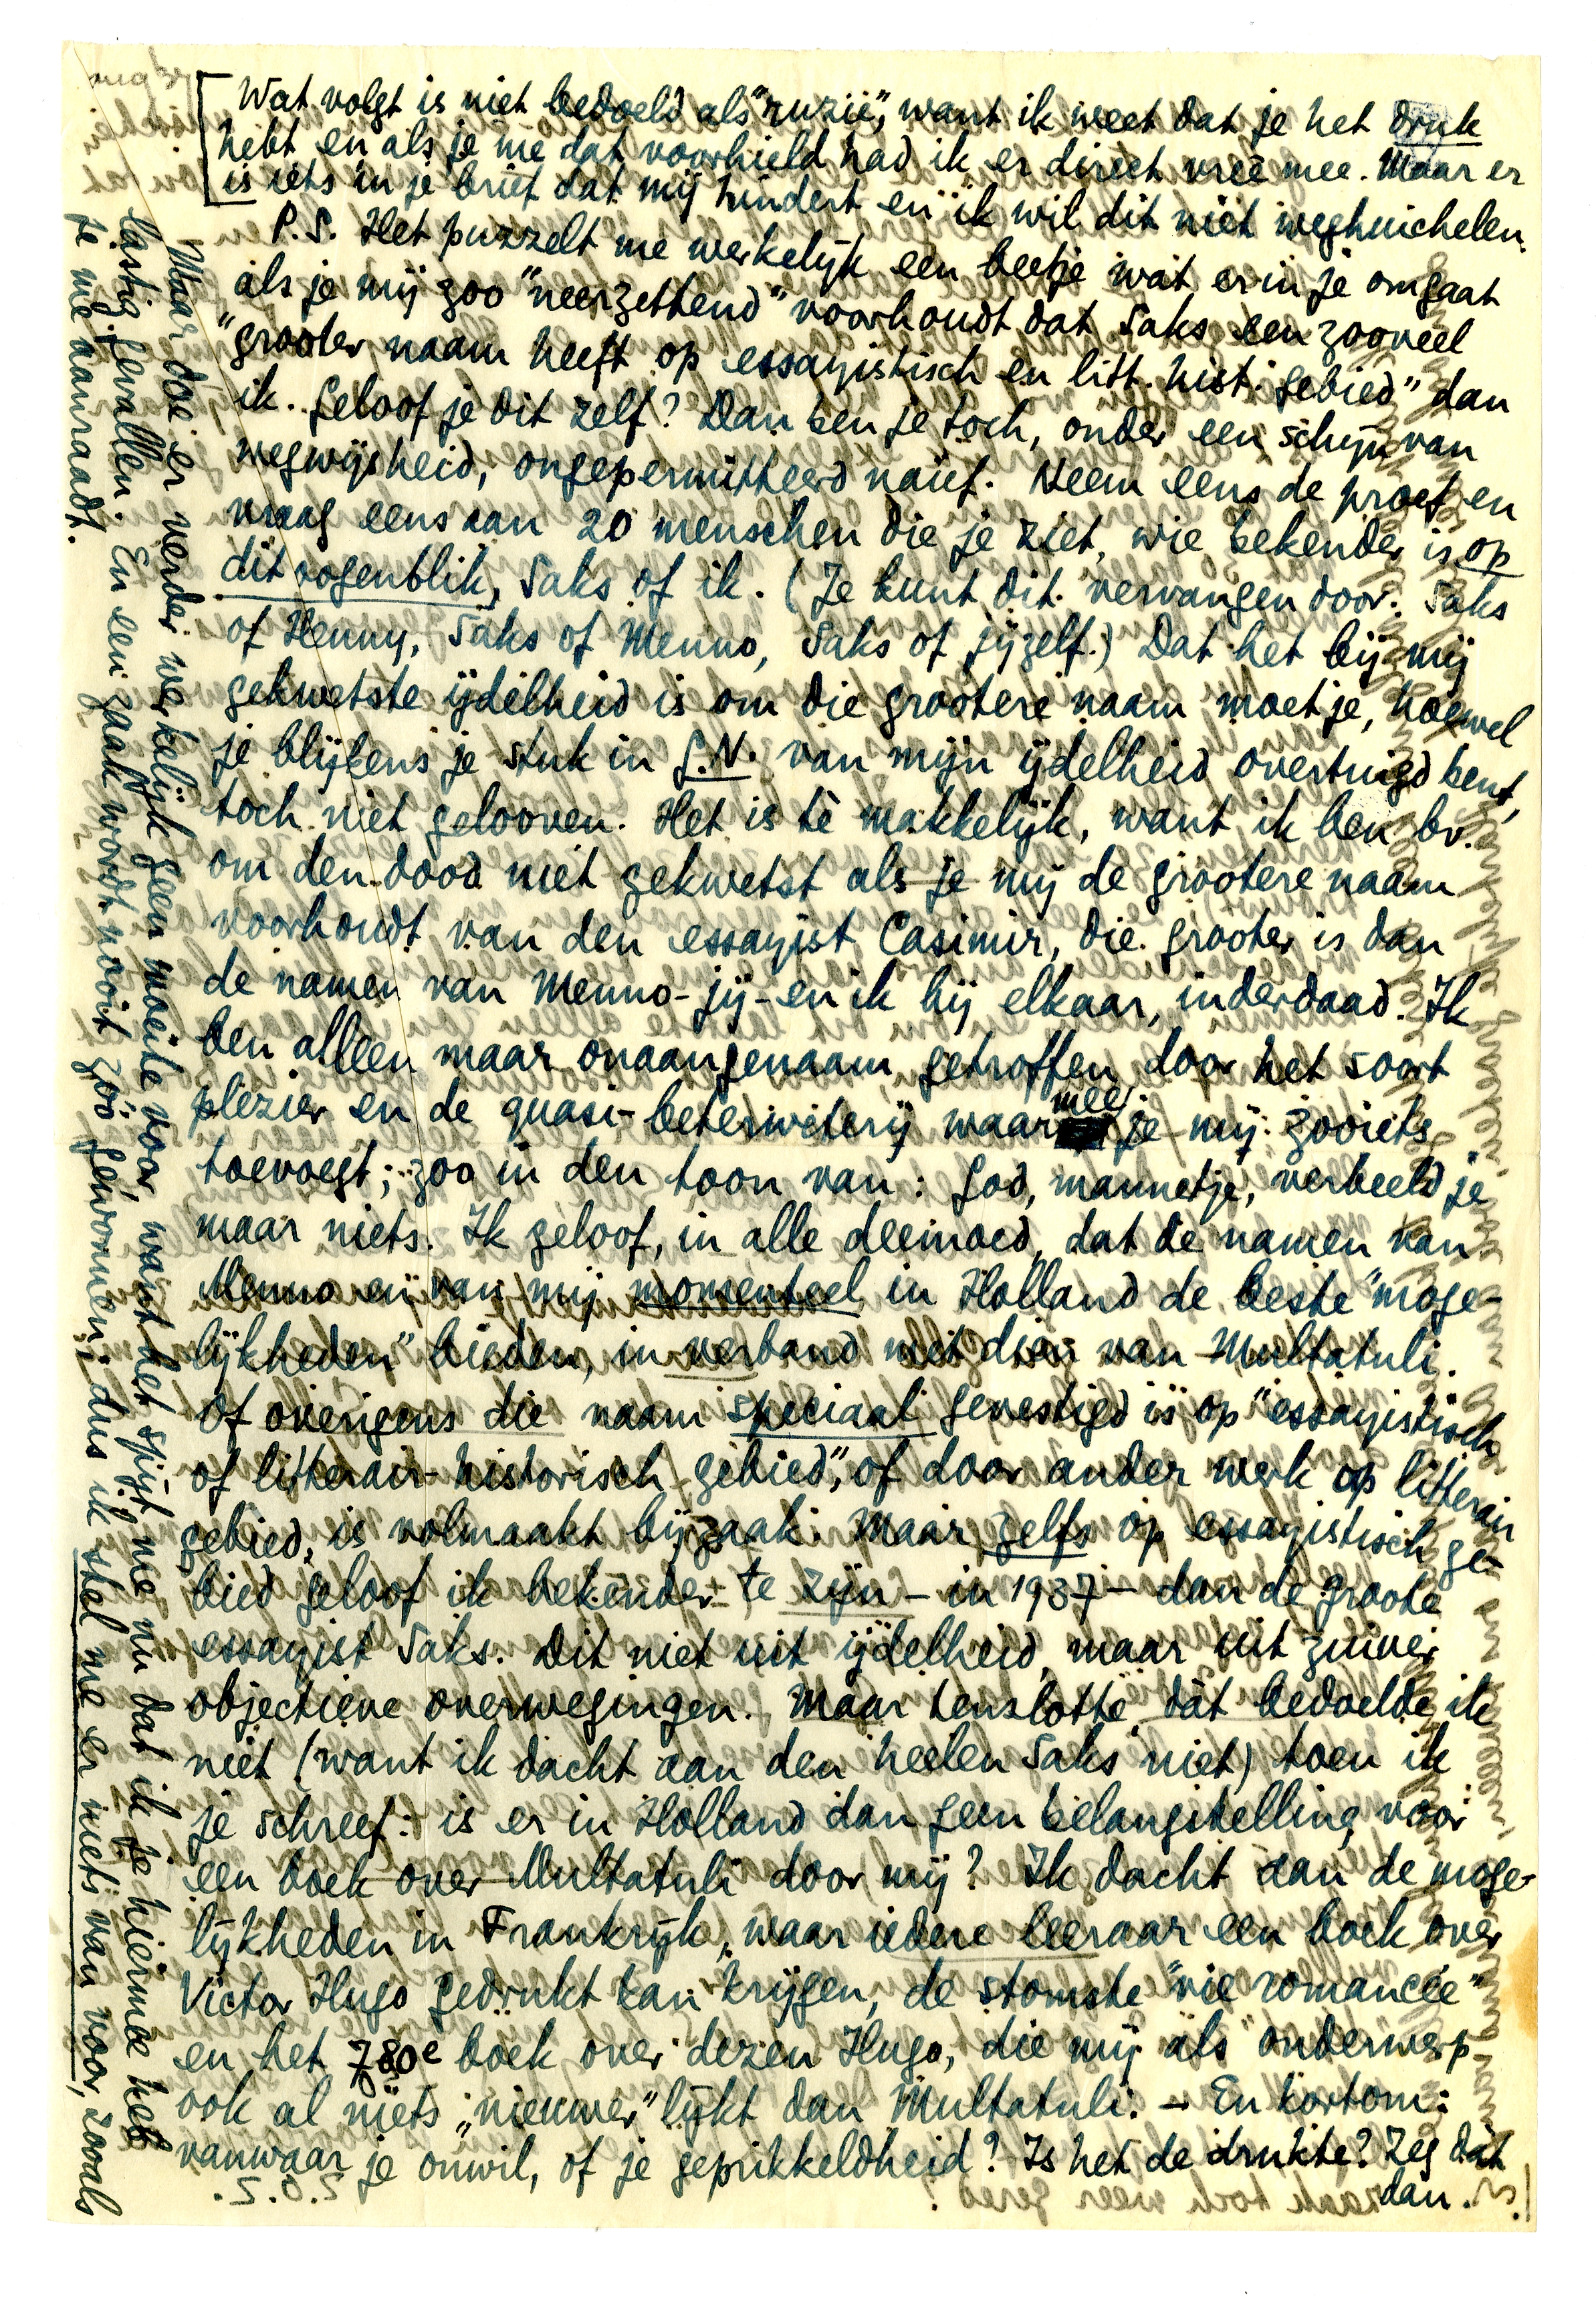 Wat volgt is niet bedoeld als "ruzie", want ik weet dat je het druk
hebt en als je me dat voorhield had ik er direct vree mee. Maar er
is iets in je brief dat mij hindert en ik wil dit niet weghuichelen.
P.S. Het puzzelt me werkelijk een beetje wat er in je omgaat
als je mij zoo "neerzettend" voorhoudt dat Saks een zooveel
"grooter naam heeft op essayistisch en litt. hist. gebied" dan
ik. Geloof je dit zelf? Dan ben je toch, onder een schijn van
wegwijsheid, ongepermitteerd naïef. Neem eens de proef en
vraag eens aan 20 menschen die je ziet, wie bekender is op
dit oogenblik, Saks of ik. (Je kunt dit vervangen door: Saks
of Henny, Saks of Menno, Saks of jijzelf.) Dat het bij mij
gekwetste ijdelheid is om die grootere naam moet je, hoewel
je blijkens je stuk in G.N. van mijn ijdelheid overtuigd bent,
toch niet gelooven. Het is te makkelijk, want ik ben bv.
om den dood niet gekwetst als je mij de grootere naam
voorhoudt van den essayist Casimir, die grooter is dan
de namen van Menno - jij - en ik bij elkaar, inderdaad. Ik
ben alleen maar onaangenaam getroffen door het soort
plezier en de quasi-beterweterij waarmee je mij zooiets
toevoegt; zoo in den toon van: God, mannetje, verbeeld je
maar niets. Ik geloof, in alle deemoed, dat de namen van
Menno en van mij momenteel in Holland de beste "moge-
lijkheden" bieden, in verband met dien van Multatuli.
Of overigens die naam speciaal gevestigd is op "essayistisch
of litterair-historisch gebied", of door ander werk op litterair
gebied, is volmaakt bijzaak. Maar zelfs op essayistisch ge-
bied geloof ik bekender te zijn - in 1937 - dan de groote
essayist Saks. Dit niet uit ijdelheid, maar uit zuiver
objectieve overwegingen. Maar tenslotte dàt bedoelde ik
niet (want ik dacht aan den heelen Saks niet) toen ik
je schreef: is er in Holland dan geen belangstelling voor
een boek over Multatuli door mij? Ik dacht aan de moge-
lijkheden in Frankrijk, waar iedere leeraar een boek over
Victor Hugo gedrukt kan krijgen, de stomste "vie romancée"
en het 780e boek over dezen Hugo, die mij als onderwerp
ook al niets "nieuwer" lijkt dan Multatuli. - En kortom:
vanwaar je onwil, of je geprikkeldheid? Is het de drukte? Zeg dàt
dan.
Maar doe er verder werkelijk geen moeite voor, want het spijt me nu dat ik je hiermee heb
lastig gevallen. En een zaak wordt nooit zóó gewonnen; dus ik stel me er niets van voor, zooals
je me aanraadt.